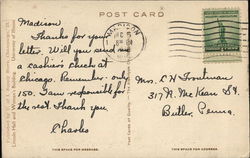 POST CARD
Madison
Thanks for your
letter. Will you send me
a cashier's check at
Chicago. Remember - only
150. I am responsible for
the rest. Thank you.
Charles
Mrs. C H Troutman
317 N. McKean St
Butler, Penna.
THIS SPACE FOR MESSAGE.
THIS SPACE FOR ADDRESS.